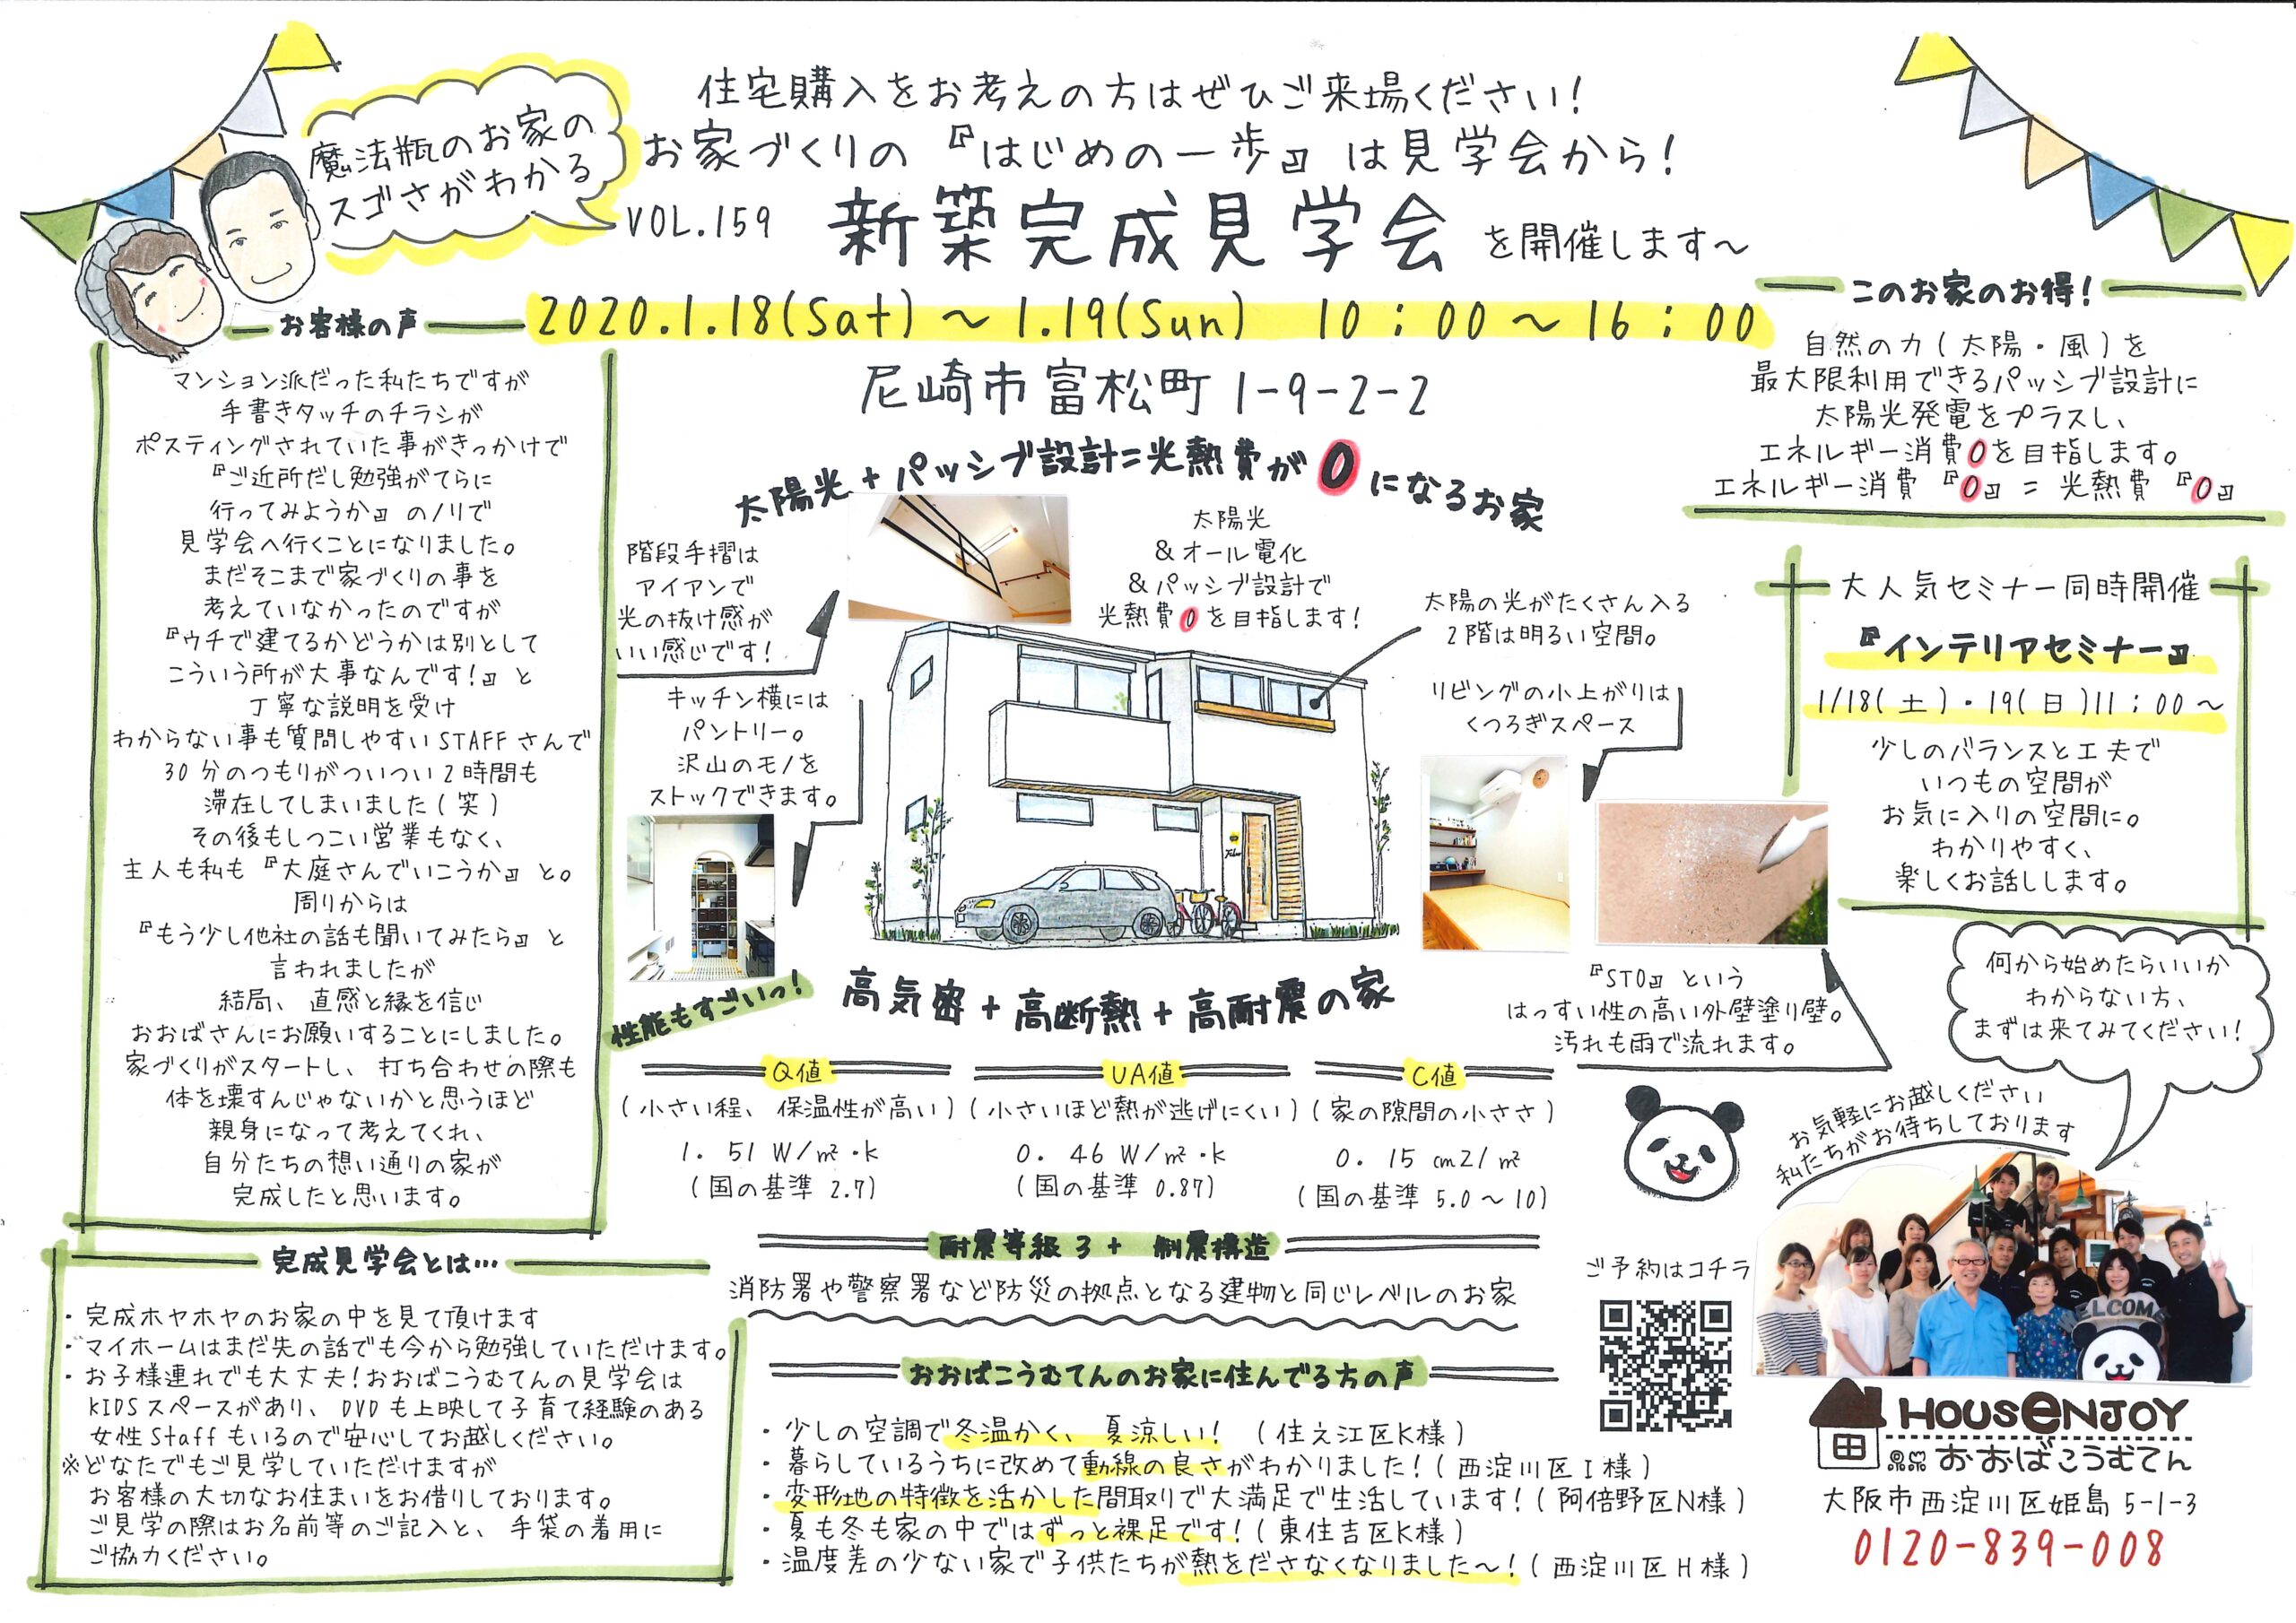 魔法瓶のお家の
スゴさがわかる
住宅購入をお考えの方はぜひご来場ください!
お家づくりの『はじめの一歩』は見学会から!
VOL.159 新築完成見学会を開催します～
2020.1.18(Sat)～1.19(Sun) 10:00～16:00
尼崎市富松町1-9-2-2
お客様の声
マンション派だった私たちですが
手書きタッチのチラシが
ポスティングされていた事がきっかけで
『ご近所だし勉強がてらに
行ってみようか』のノリで
見学会へ行くことになりました。
まだそこまで家づくりの事を
考えていなかったのですが
『ウチで建てるかどうかは別として
こういう所が大事なんです!』と
丁寧な説明を受け
わからない事も質問しやすいSTAFFさんで
30分のつもりがついつい2時間も
滞在してしまいました(笑)
その後もしつこい営業もなく、
主人も私も『大庭さんでいこうか』と。
周りからは
『もう少し他社の話も聞いてみたら』と
言われましたが
結局、直感と縁を信じ
おおばさんにお願いすることにしました。
家づくりがスタートし、打ち合わせの際も
体を壊すんじゃないかと思うほど
親身になって考えてくれ、
自分たちの想い通りの家が
完成したと思います。
完成見学会とは…
・完成ホヤホヤのお家の中を見て頂けます
・マイホームはまだ先の話でも今から勉強していただけます。
・お子様連れでも大丈夫!おおばこうむてんの見学会は
KIDSスペースがあり、DVDも上映して子育て経験のある
女性Staffもいるので安心してお越しください。
※どなたでもご見学していただけますが
お客様の大切なお住まいをお借りしております。
ご見学の際はお名前等のご記入と、手袋の着用に
ご協力ください。
太陽光+パッシブ設計=光熱費が0になるお家
階段手摺は
アイアンで
光の抜け感が
いい感じです!
太陽光
&オール電化
&パッシブ設計で
光熱費0を目指します!
太陽の光がたくさん入る
2階は明るい空間。
キッチン横には
パントリー。
沢山のモノを
ストックできます。
リビングの小上がりは
くつろぎスペース
『STO』という
はっすい性の高い外壁塗り壁。
汚れも雨で流れます。
性能もすごいっ!
高気密+高断熱+高耐震の家
Q値
(小さい程、保温性が高い)
1.51 W/㎡・k
(国の基準 2.7)
UA値
(小さいほど熱が逃げにくい)
0.46 W/㎡・k
(国の基準 0.87)
C値
(家の隙間の小ささ)
0.15 cm2/㎡
(国の基準 5.0～10)
耐震等級3+ 制震構造
消防署や警察署など防災の拠点となる建物と同じレベルのお家
おおばこうむてんのお家に住んでる方の声
・少しの空調で冬温かく、夏涼しい! (住之江区K様)
・暮らしているうちに改めて動線の良さがわかりました!(西淀川区I様)
・変形地の特徴を活かした間取りで大満足で生活しています!(阿倍野区N様)
・夏も冬も家の中ではずっと裸足です!(東住吉区K様)
・温度差の少ない家で子供たちが熱をださなくなりました～!(西淀川区H様)
このお家のお得!
自然の力(太陽・風)を
最大限利用できるパッシブ設計に
太陽光発電をプラスし、
エネルギー消費0を目指します。
エネルギー消費『0』=光熱費『0』
大人気セミナー同時開催
『インテリアセミナー』
1/18(土)・19(日)11:00～
少しのバランスと工夫で
いつもの空間が
お気に入りの空間に。
わかりやすく、
楽しくお話しします。
何から始めたらいいか
わからない方、
まずは来てみてください!
お気軽にお越しください
私たちがお待ちしております
ご予約はコチラ
HOUSeNJOY
おおばこうむてん
大阪市西淀川区姫島5-1-3
0120-839-008